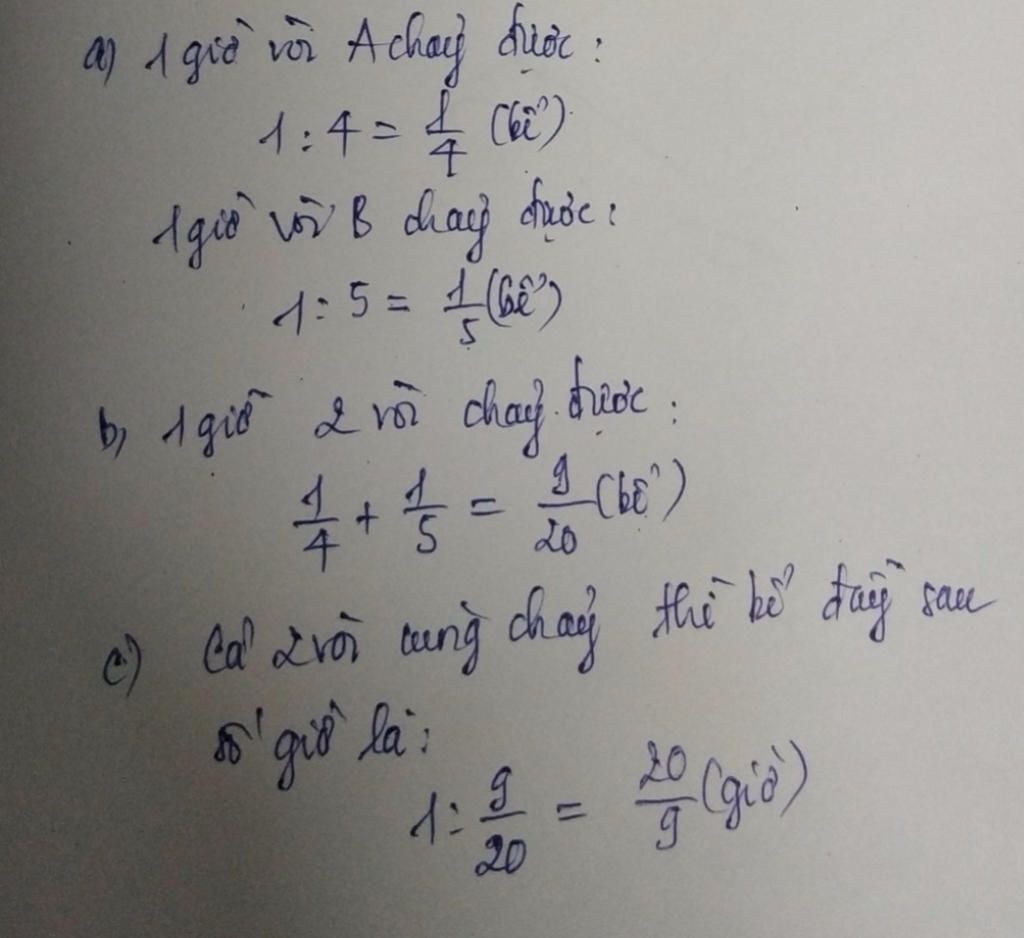 a) 1 giờ vòi A chảy được:
1 : 4 = 1/4 (bể)
1 giờ vòi B chảy được:
1 : 5 = 1/5 (bể)
b, 1 giờ 2 vòi chảy được:
1/4 + 1/5 = 9/20 (bể)
c) Cả 2 vòi cùng chảy thì bể đầy sau
số giờ là:
1 : 9/20 = 20/9 (giờ)